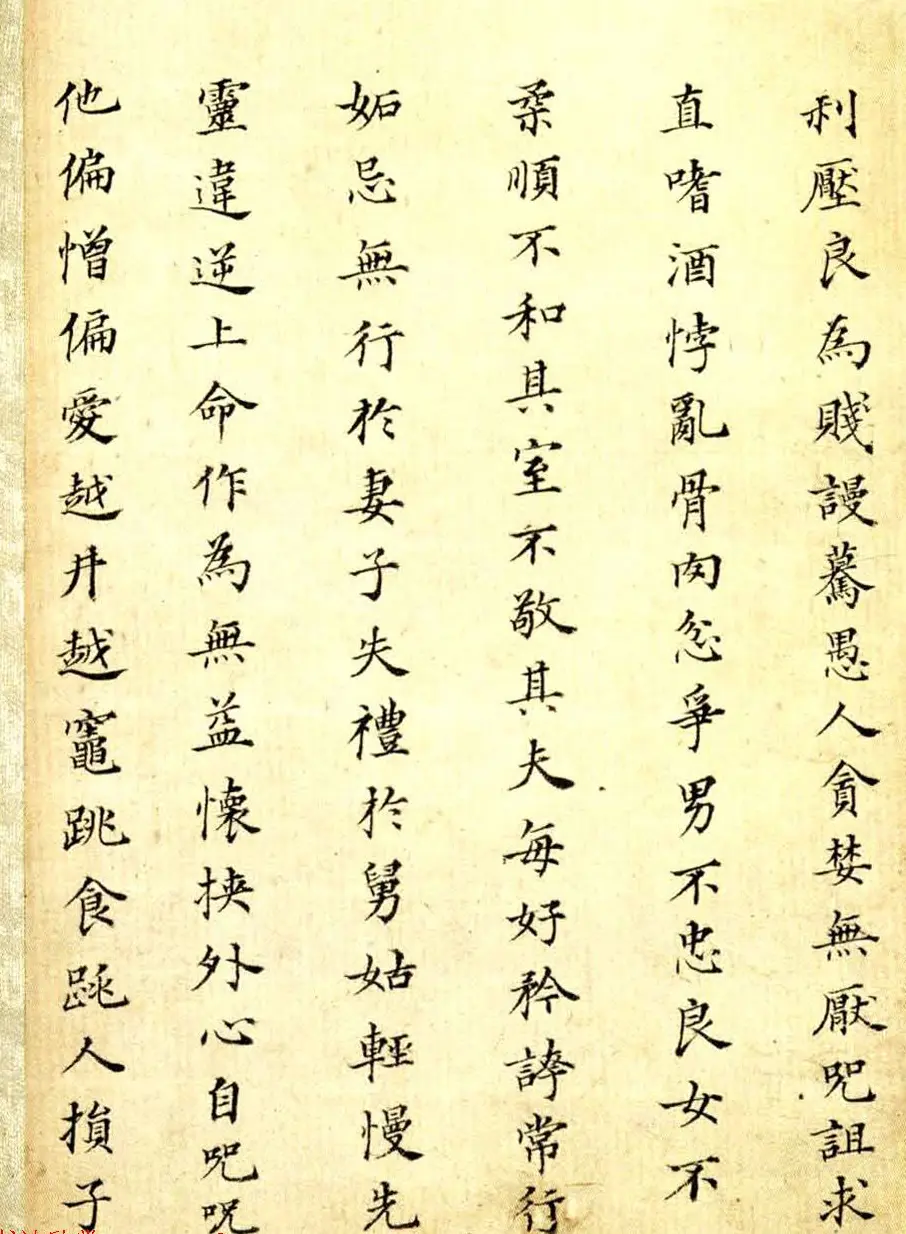 利壓良為賤謾驀愚人貪婪無厭呪詛求
直嗜酒悖亂骨肉忿爭男不忠良女不
柔順不和其室不敬其夫每好矜誇常行
妬忌無行於妻子失禮於舅姑輕慢先
靈違逆上命作為無益懷挾外心自呪呪
他偏憎偏愛越井越竈跳食跳人損子